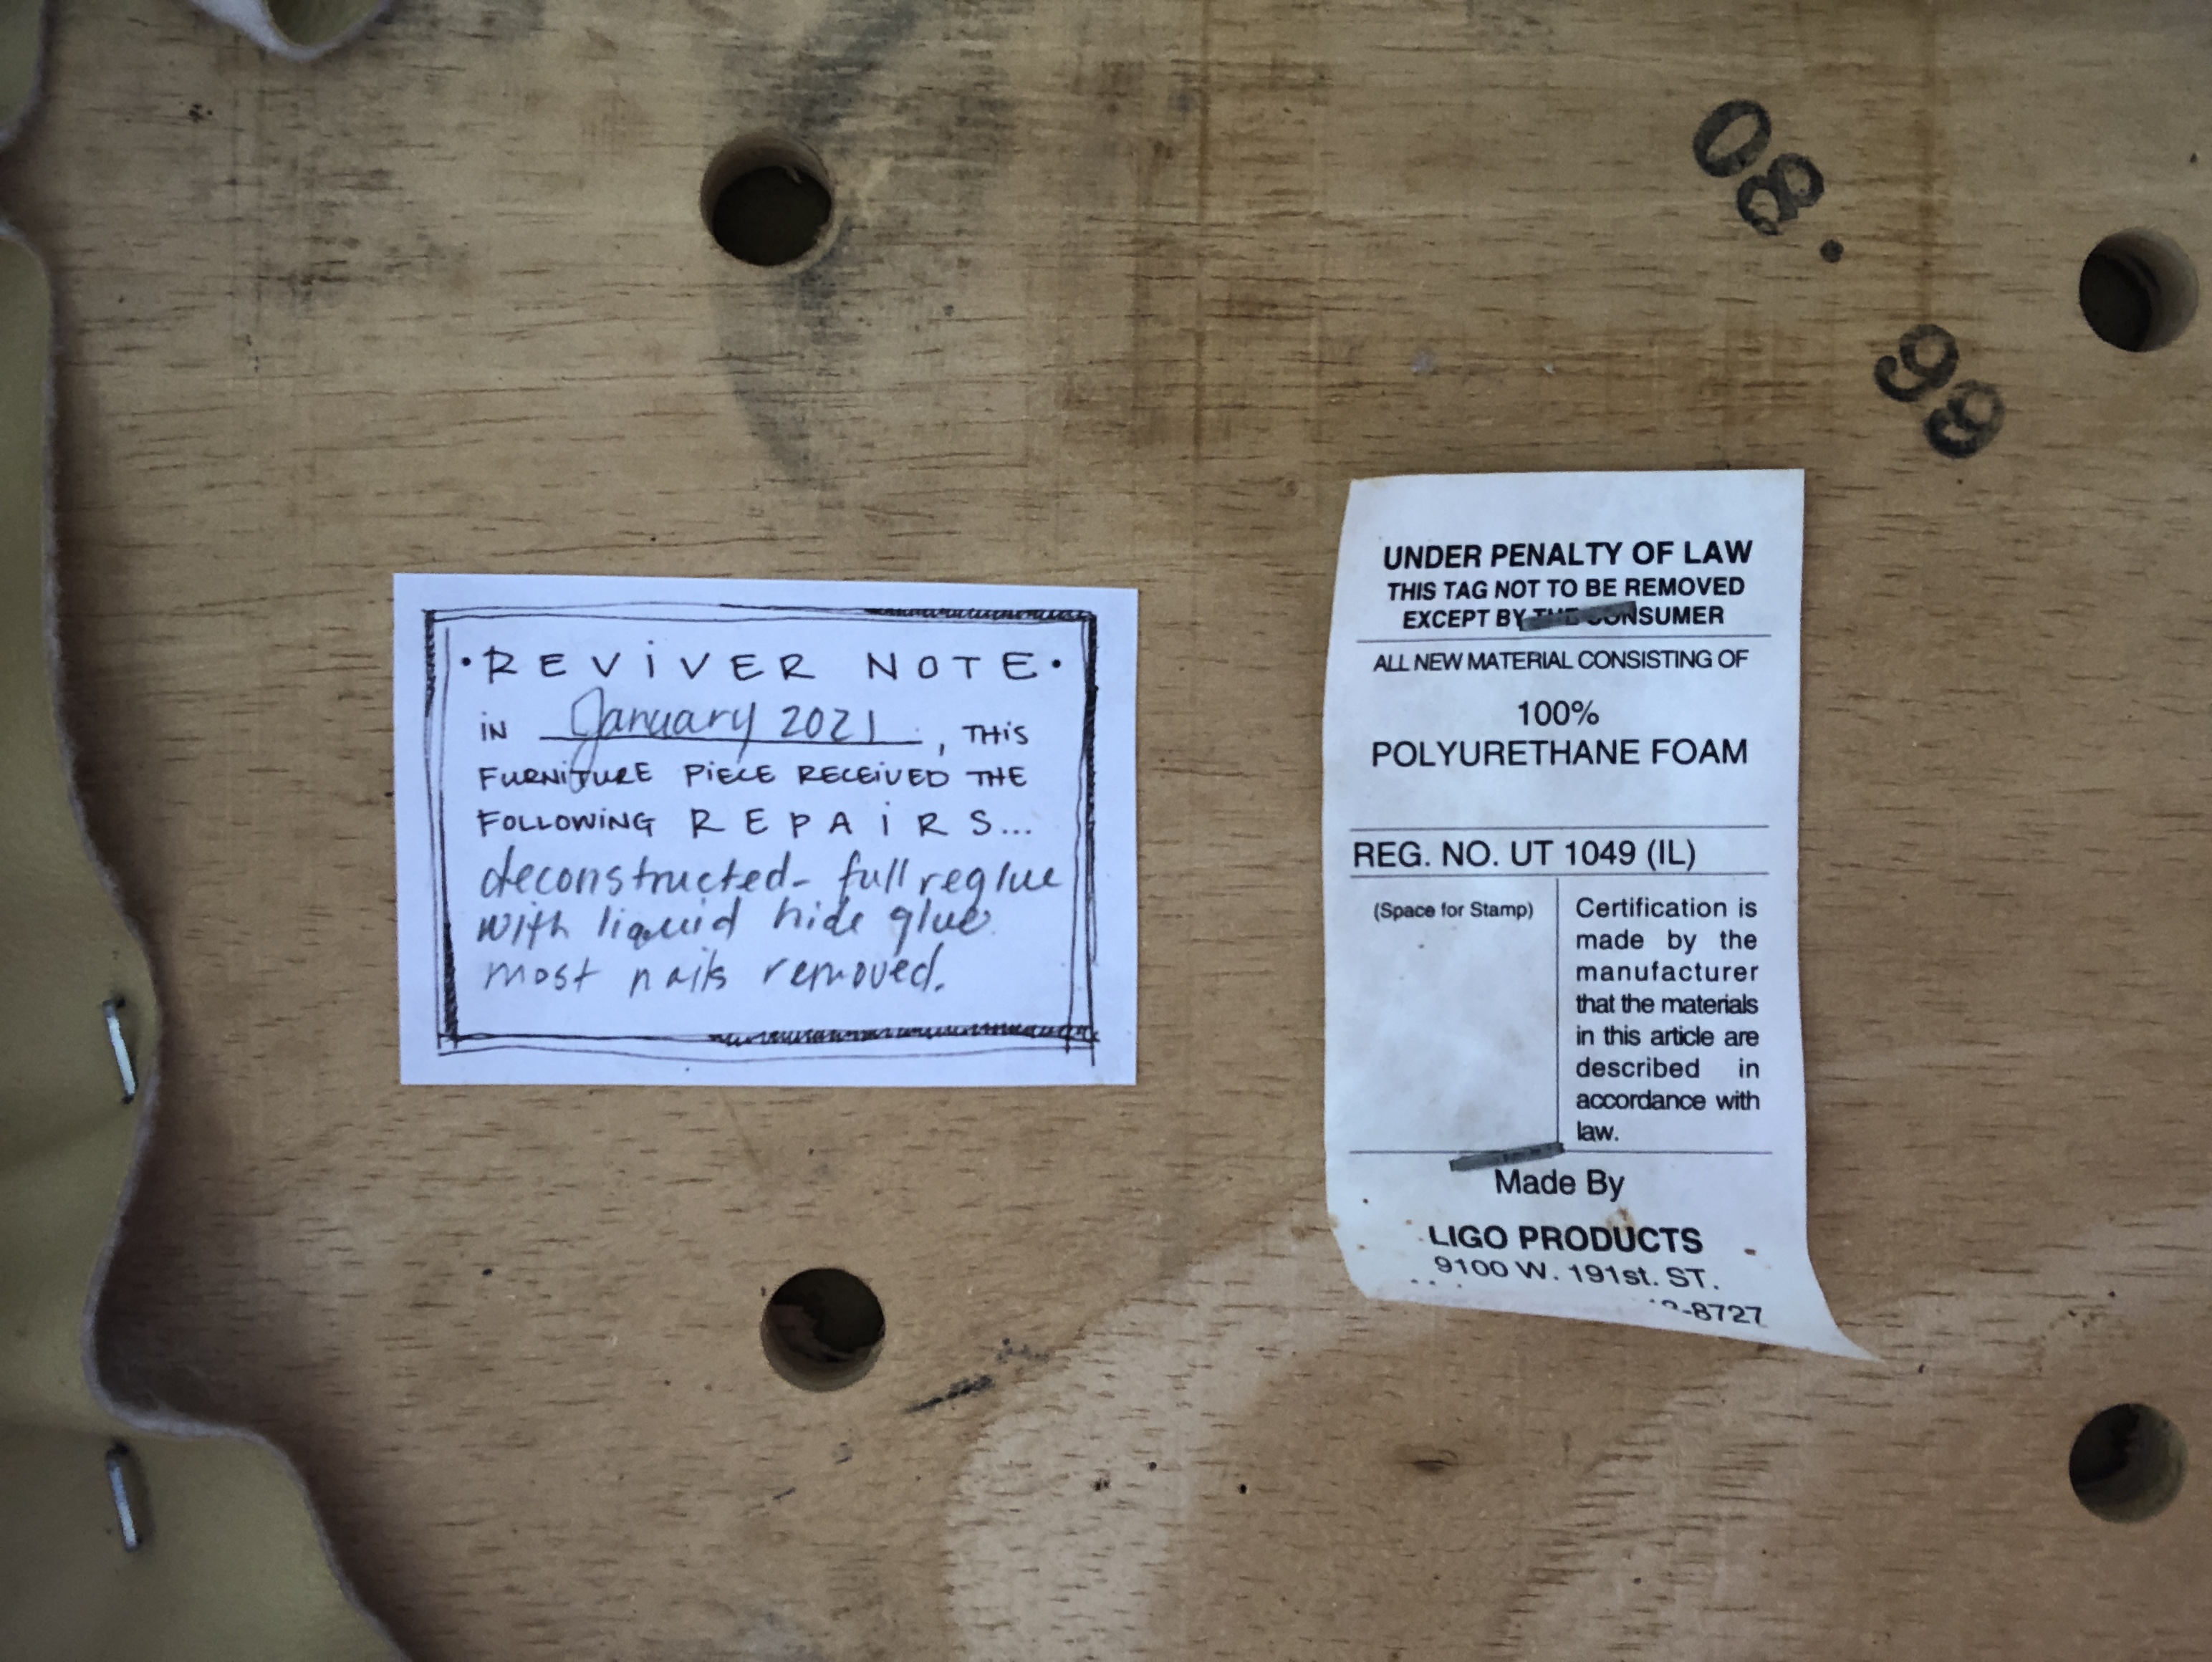 08.
98
• REViVER NOTE •
iN January 2021, THiS
FURNiTURE PiECE RECEiVED THE
FOLLOWiNG REPAiRS...
deconstructed - full reglue
with liquid hide glue.
most nails removed.
UNDER PENALTY OF LAW
THIS TAG NOT TO BE REMOVED
EXCEPT BY THE CONSUMER
ALL NEW MATERIAL CONSISTING OF
100%
POLYURETHANE FOAM
REG. NO. UT 1049 (IL)
(Space for Stamp)
Certification is
made by the
manufacturer
that the materials
in this article are
described in
accordance with
law.
Made By
LIGO PRODUCTS
9100 W. 191st. ST.
-8727